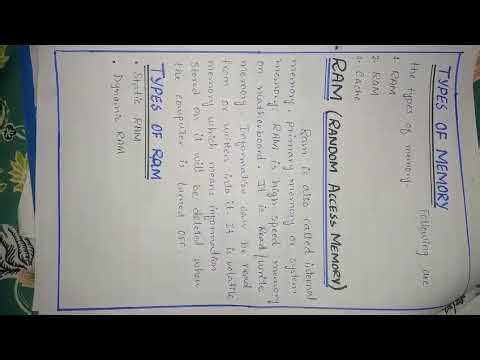 TYPES OF MEMORY
Following are
the types of memory.
1. RAM
2. ROM
3. Cache
RAM (RANDOM ACCESS MEMORY)
Ram is also called internal
memory, primary memory or system
memory. RAM is high speed memory
on motherboard. It is Read/write
memory. Information can be read
from or written into it. it is volatile
memory which means information
stored on it will be deleted when
the computer is turned off.
TYPES OF RAM
• Static RAM
• Dynamic RAM